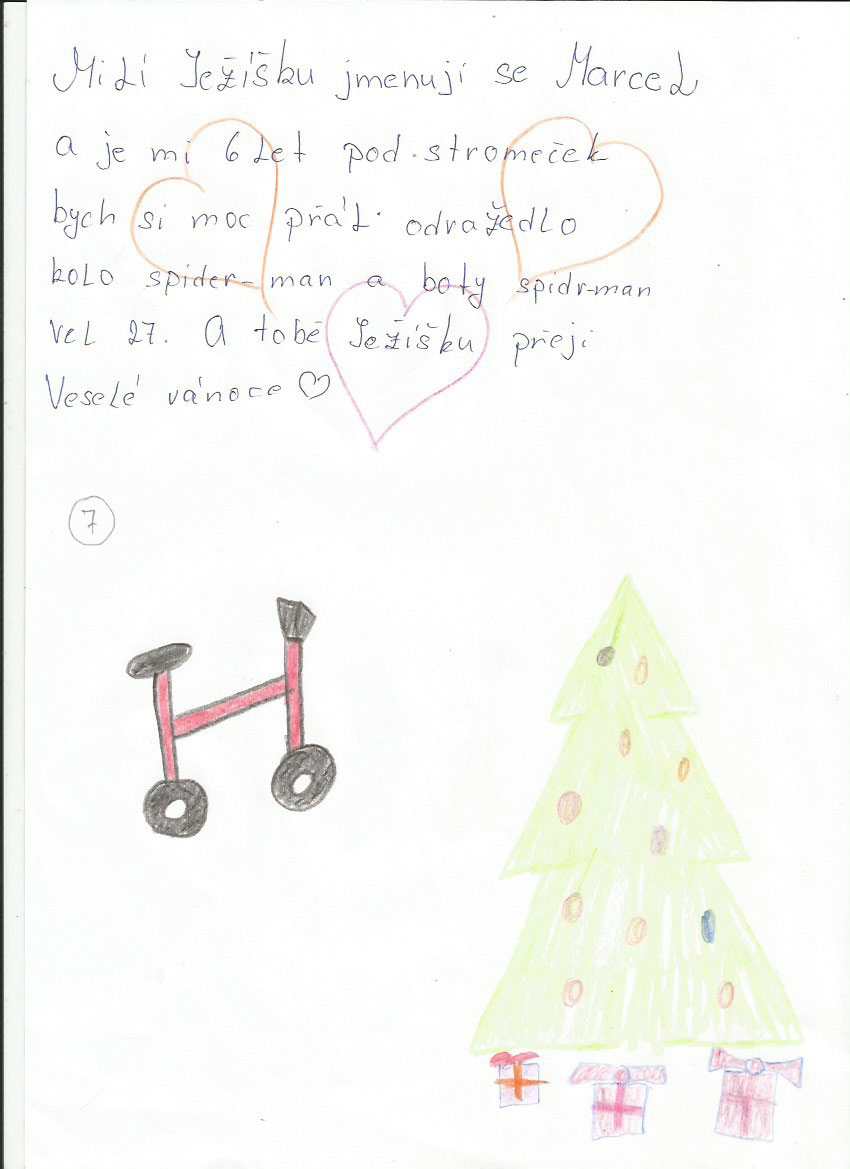 Milí Ježíšku jmenuji se Marcel
a je mi 6 let pod stromeček
bych si moc přál odražedlo
kolo spider-man a boty spidr-man
vel 27. A tobě Ježíšku přeji
Veselé vánoce ♡
7